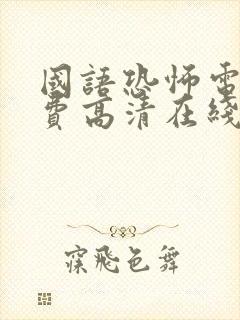 國語恐怖電
費高清在綫
寐飛色舞